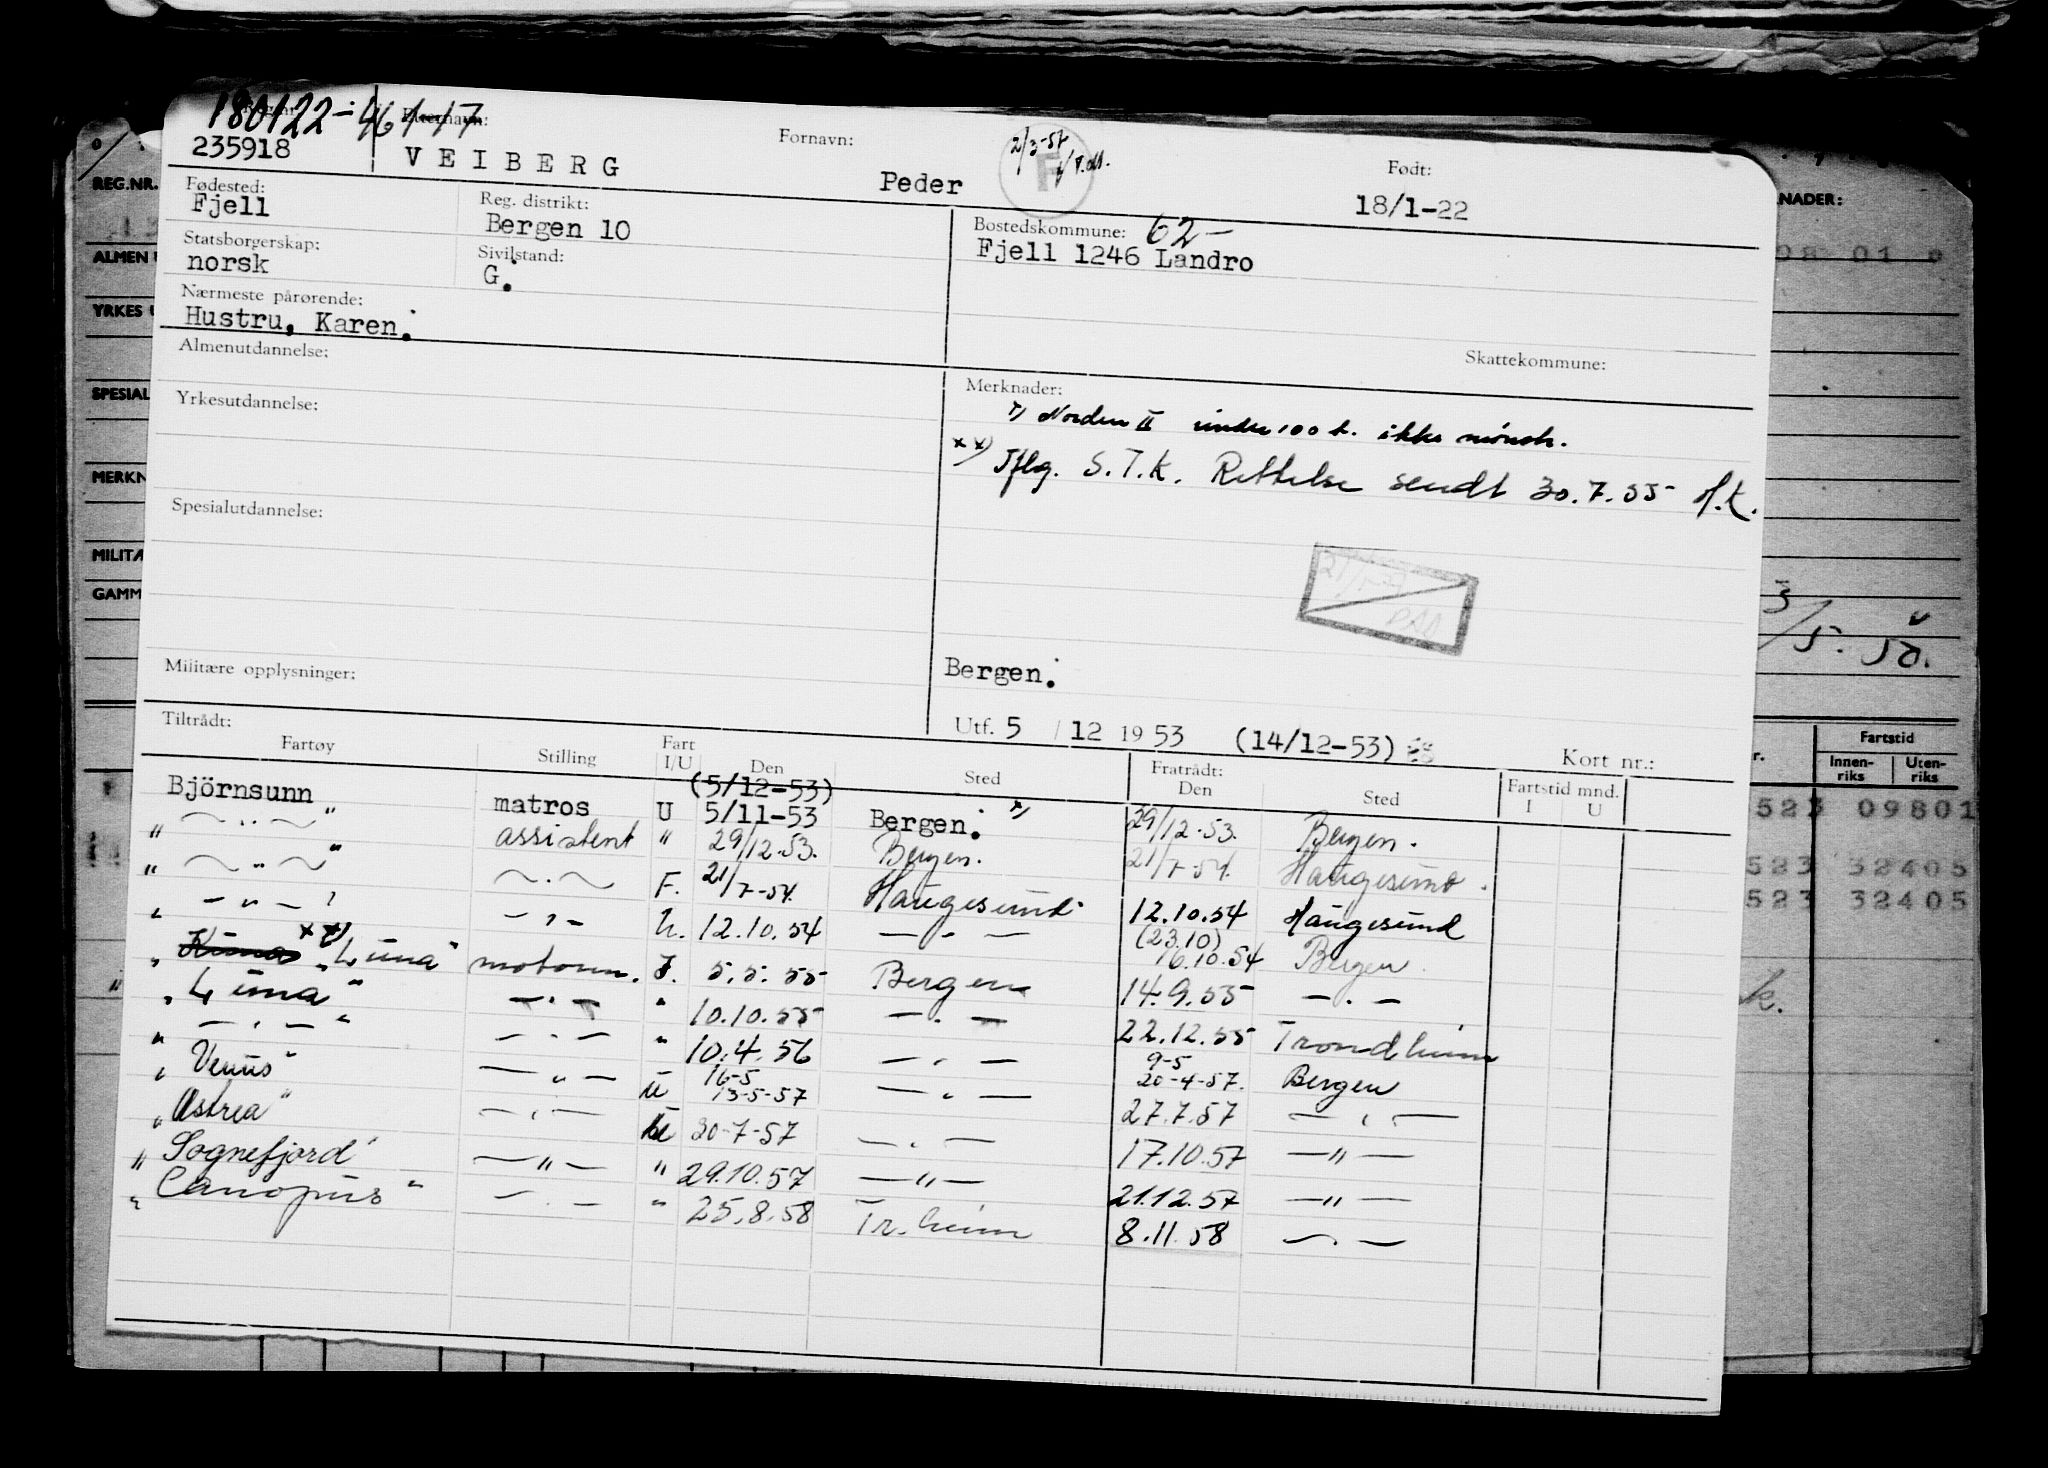 180122-46117
Etternavn:
Fornavn:
2/3-57
F
Født:
235918
VEIBERG
Peder
18/1-22
Fødested:
Fjell
Reg. distrikt:
Bergen 10
Bostedskommune: 62-
Fjell 1246 Landro
Statsborgerskap:
norsk
Sivilstand:
G.
Nærmeste pårørende:
Hustru, Karen.
Skattekommune:
Almenutdannelse:
Merknader:
Norden II under 100 t. ikke mönstr.
xx) Iflg. S.T.K. Rettelse sendt 30.7.55 H.K.
Yrkesutdannelse:
Spesialutdannelse:
Militære opplysninger:
Bergen.
Utf. 5 / 12 1953 (14/12-53)
Kort nr.:
Tiltrådt:
Fratrådt:
Fartøy Stilling Fart I/U Den Sted Den Sted Fartstid mnd. I U
(5/12-53)
Björnsunn " matros U 5/11-53 Bergen. x) 29/12-53. Bergen.
" — " — " assistent " 29/12-53. Bergen. 21/7-54. Haugesund.
" — " — " — " — F. 21/7-54. Haugesund 12.10.54 Haugesund
" — " — " — " — U. 12.10.54 — " — (23.10) 16.10.54 Bergen
" Kuna xx) "Luna" motorm. I. 5.5.55 Bergen 14.9.55 — " —
" Luna " — " — " 10.10.55 — " — 22.12.55 Trondheim
" — " — " — " — " 10.4.56 — " — 9-5 20-4-57. Bergen
" Venus " — " — U 16-5 13-5-57 — " — 27.7.57 — " —
" Astrea " — " — U 30-7-57 — " — 17.10.57 — " —
" Sognefjord " — " — " 29.10.57 — " — 21.12.57 — " —
" Canopus " — " — " 25.8.58 Tr.heim 8.11.58 — " —
REG.NR.
ALMEN U
YRKES U
SPESIAL
MERKN
MILITÆ
GAMM
KNADER:
08 01
3/5.50.
Fartstid
Innenriks
Utenriks
523 09801
523 32405
523 32405
k.